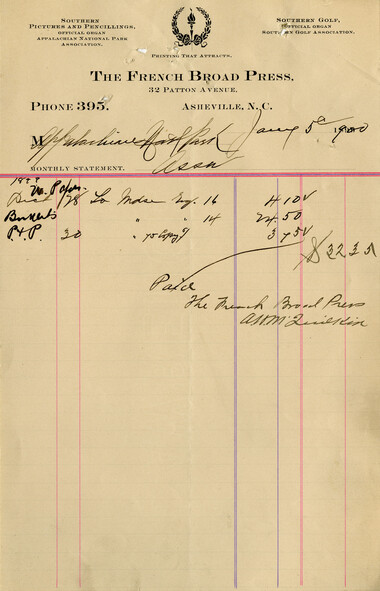 SOUTHERN
PICTURES AND PENCILLINGS,
OFFICIAL ORGAN
APPALACHIAN NATIONAL PARK
ASSOCIATION.
SOUTHERN GOLF,
OFFICIAL ORGAN
SOUTHERN GOLF ASSOCIATION.
PRINTING THAT ATTRACTS.
THE FRENCH BROAD PRESS,
32 PATTON AVENUE,
PHONE 395.
ASHEVILLE, N. C.
M Appalachian Natl Park Jany 5th 1900
Assn
MONTHLY STATEMENT.
28 To Mdse 16 4 10
" " 14 24.50
P. & P. 30 " 75 Copy 3 75
$32 35
Paid
The French Broad Press